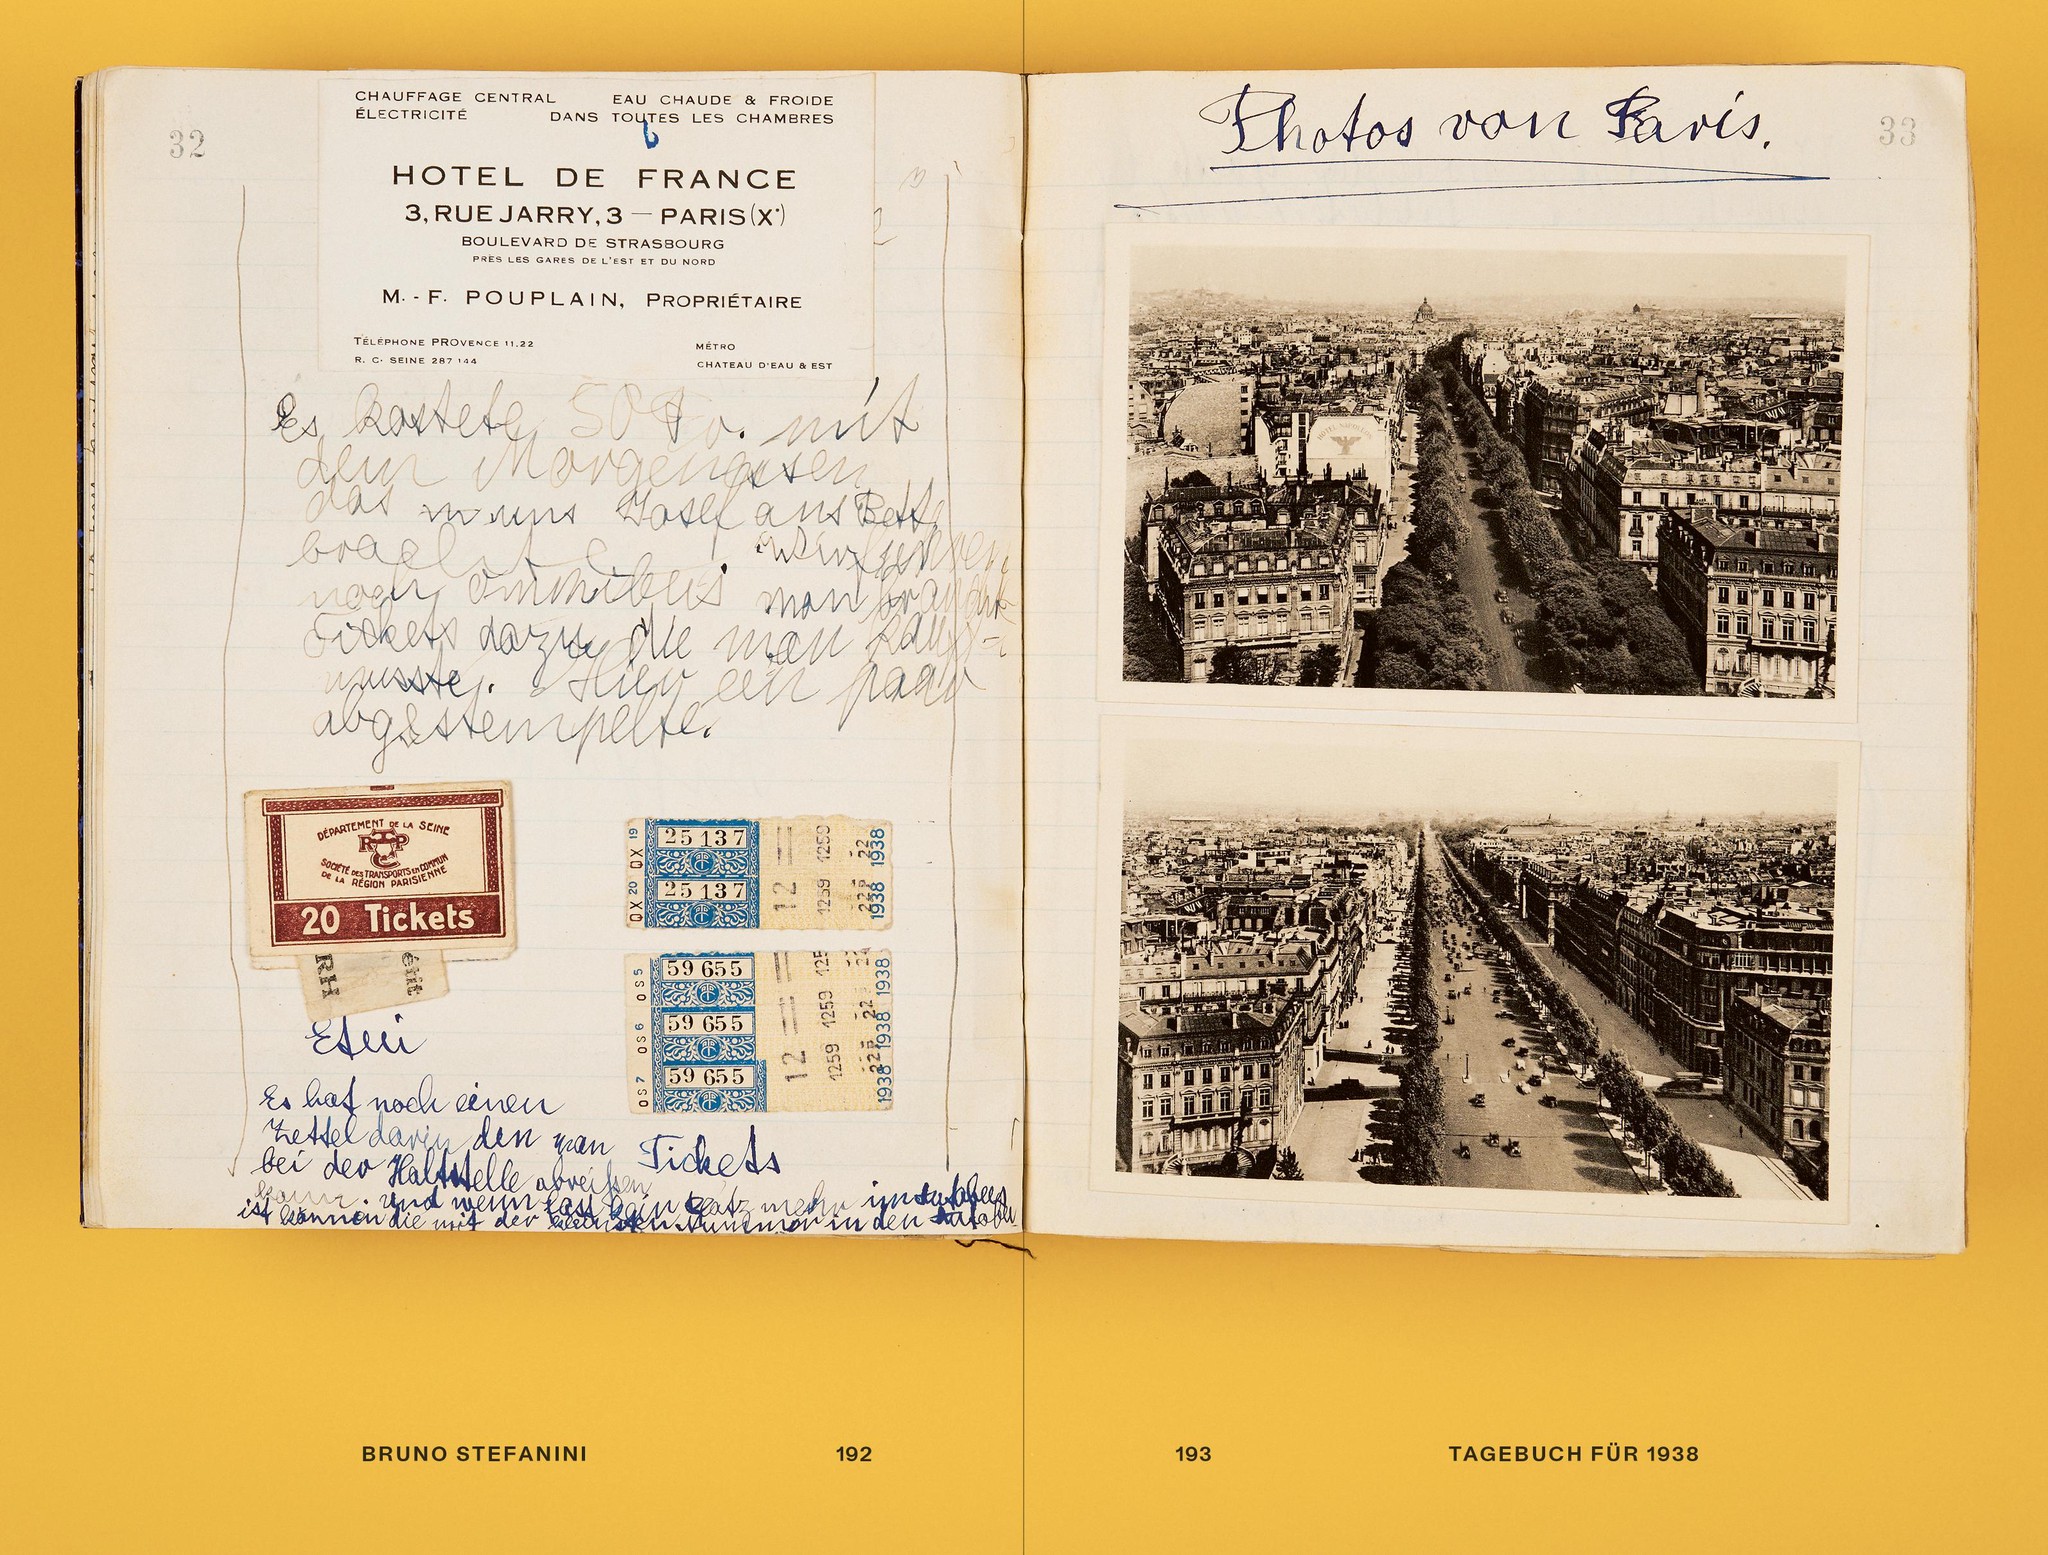 32
CHAUFFAGE CENTRAL EAU CHAUDE & FROIDE
ÉLECTRICITÉ DANS TOUTES LES CHAMBRES
HOTEL DE FRANCE
3, RUE JARRY, 3 — PARIS (X•)
BOULEVARD DE STRASBOURG
PRÈS LES GARES DE L'EST ET DU NORD
M.-F. POUPLAIN, PROPRIÉTAIRE
TÉLÉPHONE PROVENCE 11.22 MÉTRO
R. C. SEINE 287 144 CHATEAU D'EAU & EST
Es kostete 50 Fr. mit
dem Morgenessen
das uns Josef ans Bett
bracht
noch omnibus man braucht
Tickets dazu die man
musste. Hier ein paar
abgestempelte.
DÉPARTEMENT DE LA SEINE
SOCIÉTÉ DES TRANSPORTS EN COMMUN
DE LA RÉGION PARISIENNE
20 Tickets
RH
Etui
QX 19 25137 1259 22 1938
QX 20 25137 12 1259 22 1938
OS 5 59655 125 1938
OS 6 59655 1259 22 1938
OS 7 59655 12 1259 22 1938
Es hat noch einen
Zettel darin den man
bei der Haltstelle abreißen
Tickets
kann. Und wenn fast kein Platz mehr im Autobus
ist können die mit der kleinsten Nummer in den
Photos von Paris.
33
HOTEL NAPOLEON
BRUNO STEFANINI 192
193 TAGEBUCH FÜR 1938